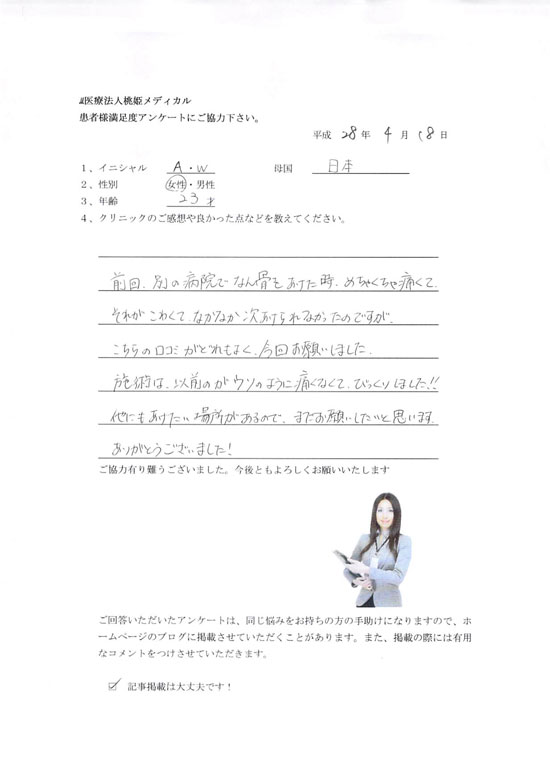 医療法人桃姫メディカル
患者様満足度アンケートにご協力下さい。
平成 28 年 4 月 18 日
1、イニシャル A・W 母国 日本
2、性別 女性・男性
3、年齢 23 才
4、クリニックのご感想や良かった点などを教えてください。
前回、別の病院でなん骨をあけた時、めちゃくちゃ痛くて、
それがこわくて、なかなか次あけられなかったのですが、
こちらの口コミがどれもよく、今回お願いしました。
施術は、以前のがウソのように痛くなくて、びっくりしました!!
他にもあけたい場所があるので、またお願いしたいと思います。
ありがとうございました!
ご協力有り難うございました。今後ともよろしくお願いいたします
ご回答いただいたアンケートは、同じ悩みをお持ちの方の手助けになりますので、ホ
ームページのブログに掲載させていただくことがあります。また、掲載の際には有用
なコメントをつけさせていただきます。
☑ 記事掲載は大丈夫です！